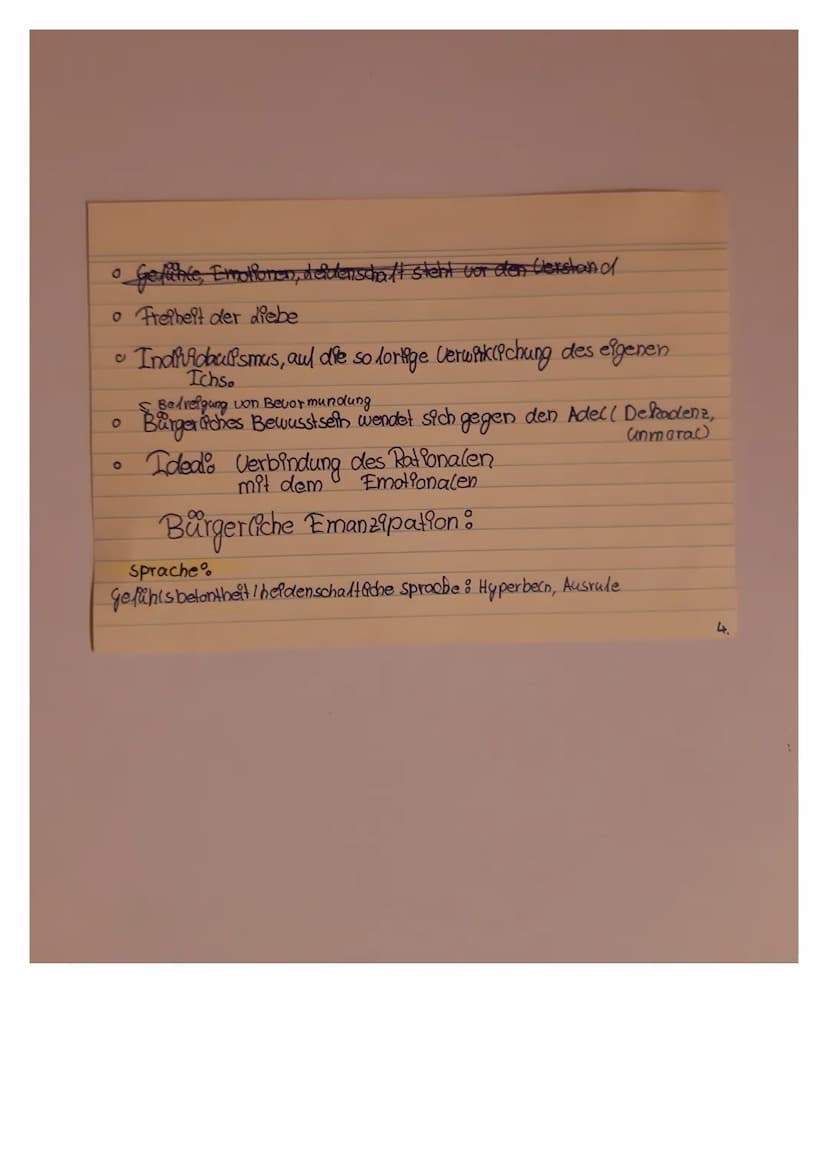 ○ Gefühle, Emotionen, Leidenschaft steht vor den Verstand
○ Freiheit der Liebe
○ Individualismus, auf die sofortige Verwirklichung des eigenen
Ichs.
↳ Befreigung von Bevormundung
○ Bürgerliches Bewusstsein wendet sich gegen den Adel (Dekadenz,
Unmoral)
○ Ideal: Verbindung des Rationalen
mit dem Emotionalen
Bürgerliche Emanzipation:
Sprache:
Gefühlsbetontheit / leidenschaftliche Sprache: Hyperbeln, Ausrufe
4.